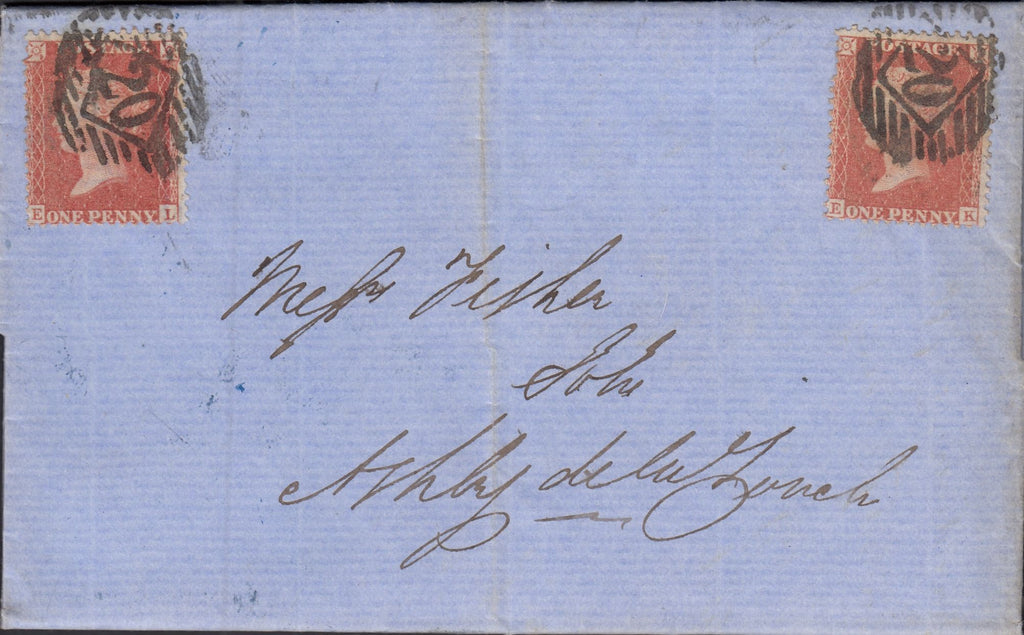 POSTAGE
20
E ONE PENNY L
POSTAGE
20
E ONE PENNY K
Messrs Fisher
Sols
Ashby de la Zouch